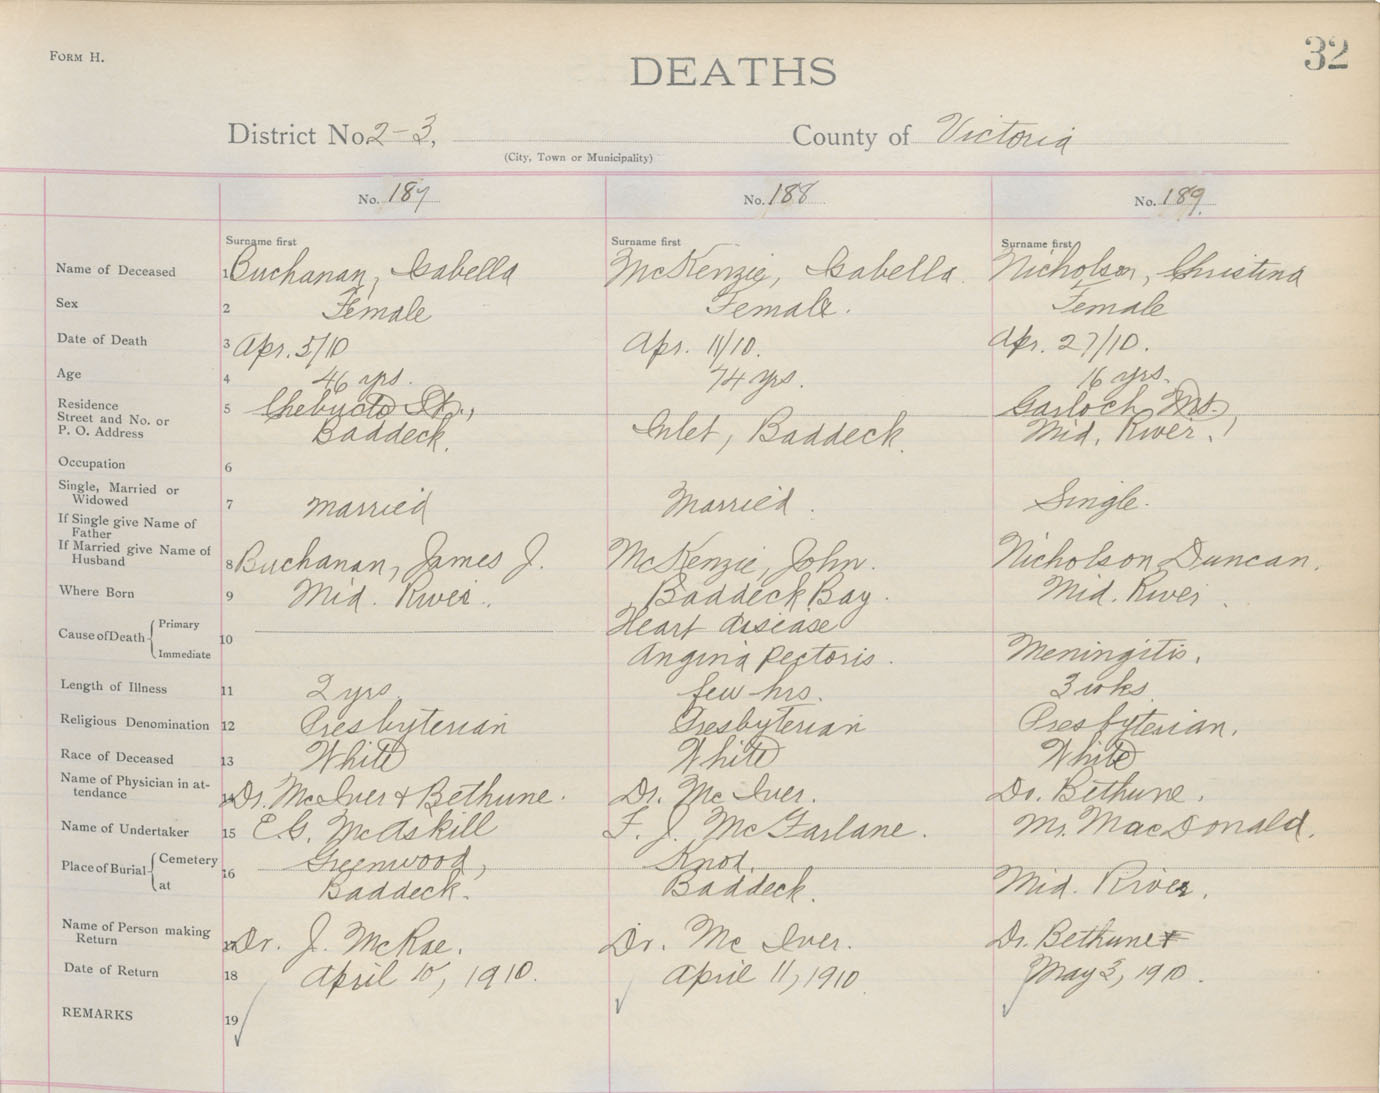 FORM H.
DEATHS
32
District No. 2-3, County of Victoria
(City, Town or Municipality)
No. 187 No. 188 No. 189
Surname first Surname first Surname first
Name of Deceased 1 Buchanan, Isabella McKenzie, Isabella. Nicholson, Christina
Sex 2 Female Female. Female
Date of Death 3 Apr. 5/10 Apr. 11/10. Apr. 27/10.
Age 4 46 yrs. 74 yrs. 16 yrs.
Residence 5 Chebucto St., Garloch Mt.,
Street and No. or
P. O. Address Baddeck. Inlet, Baddeck. Mid. River.
Occupation 6
Single, Married or
Widowed 7 married Married. Single.
If Single give Name of
Father
If Married give Name of
Husband 8 Buchanan, James J. McKenzie, John. Nicholson Duncan.
Where Born 9 Mid. River. Baddeck Bay. Mid. River.
Cause of Death Primary 10 Heart disease
Immediate Angina Pectoris. Meningitis.
Length of Illness 11 2 yrs. few hrs. 3 wks
Religious Denomination 12 Presbyterian Presbyterian Presbyterian.
Race of Deceased 13 White White White
Name of Physician in at-
tendance 14 Dr. McIver & Bethune. Dr. McIver. Dr. Bethune.
Name of Undertaker 15 E G. McAskill F. J. McFarlane. Mr. MacDonald.
Place of Burial Cemetery 16 Greenwood, Knod.
at Baddeck. Baddeck. Mid. River.
Name of Person making
Return 17 Dr. J. McRae. Dr. Mc Iver. Dr. Bethune
Date of Return 18 April 10, 1910. April 11, 1910 May 3, 1910.
REMARKS 19